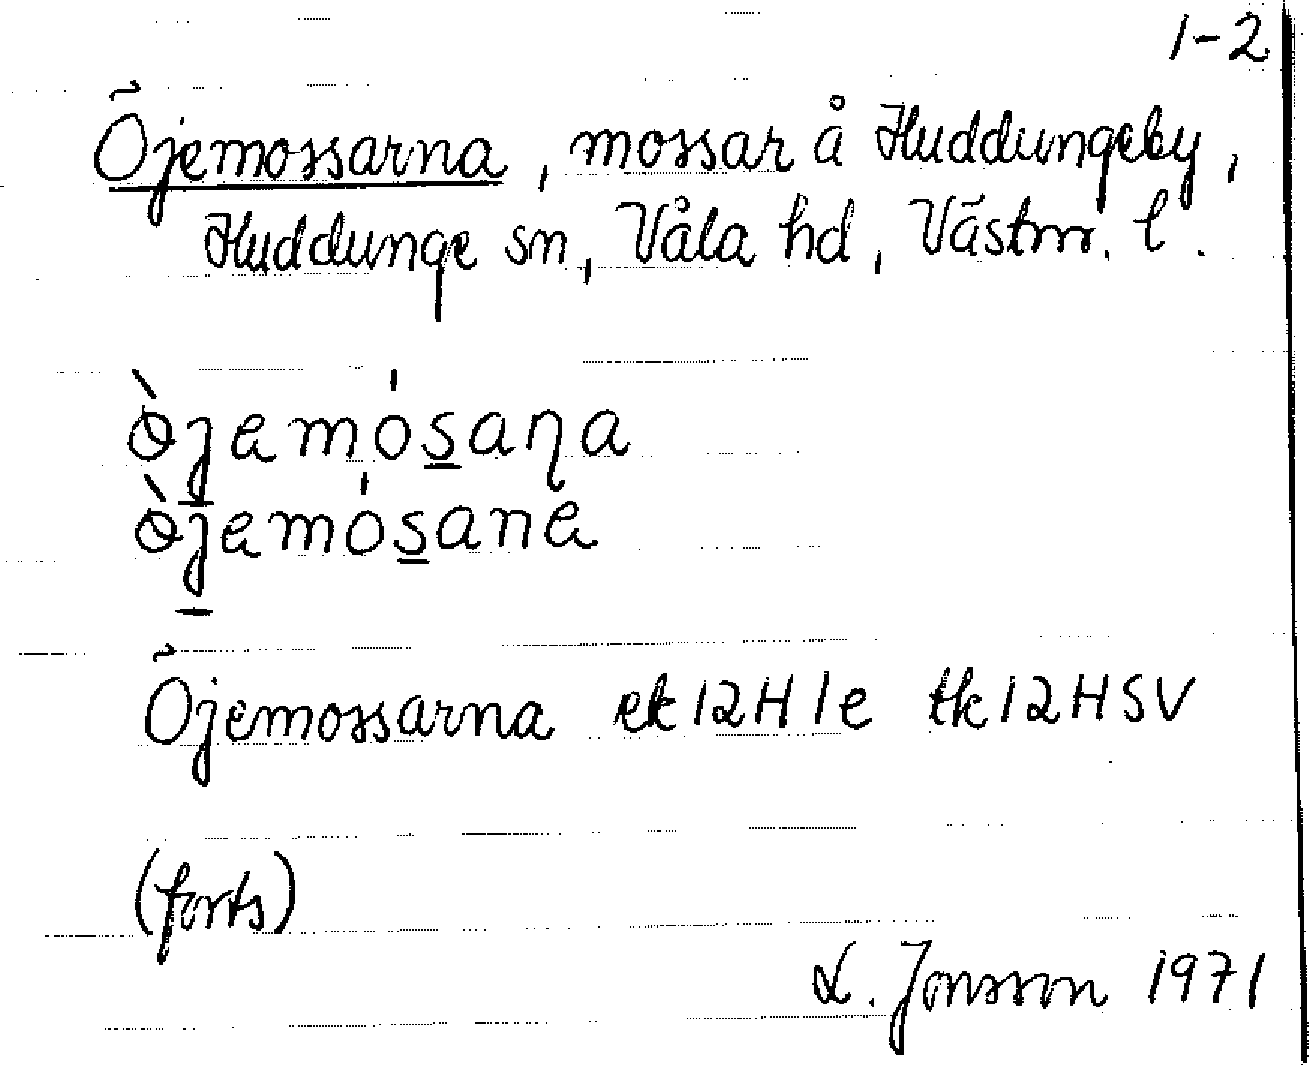 1-2
Öjemossarna, mossar å Huddungeby,
Huddunge sn, Våla hd, Västm. l.
ö̀jemósaɳa
ö̀jemósane
Öjemossarna ek 12H1e tk 12HSV
(forts)
L. Jonsson 1971